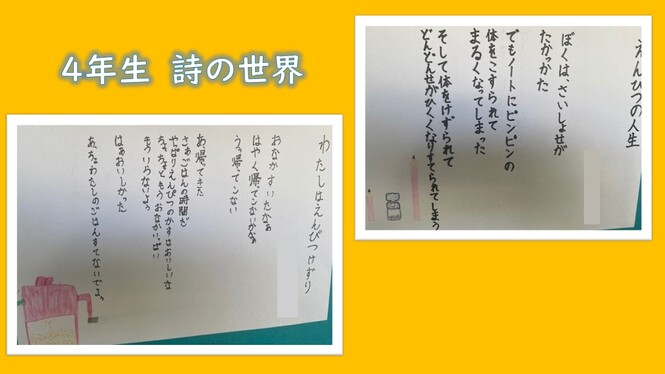 4年生 詩の世界
えんぴつの人生
ぼくは、さいしょせが
たかかった
でもノートにピンピンの
体をこすられて
まるくなってしまった
そして体をけずられて
どんどんせがひくくなりすてられてしまう
わたしはえんぴつけずり
おなかすいたなぁ
はやく帰てこないかなぁ
うっ帰てこない
あ、帰てきた
さぁごはんの時間だ
やぱりえんぴつのかすはおいしいな
ちょちょともうおなかいぱい
もういらないよぅ
はぁおいしかった
あ、ちょわたしのごはんすてないでよ。